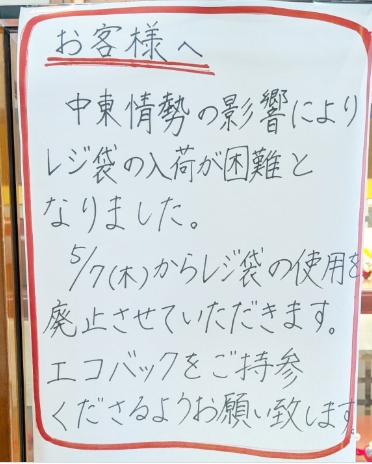 お客様へ
中東情勢の影響により
レジ袋の入荷が困難と
なりました。
5/7(木)からレジ袋の使用を
廃止させていただきます。
エコバックをご持参
くださるようお願い致します。